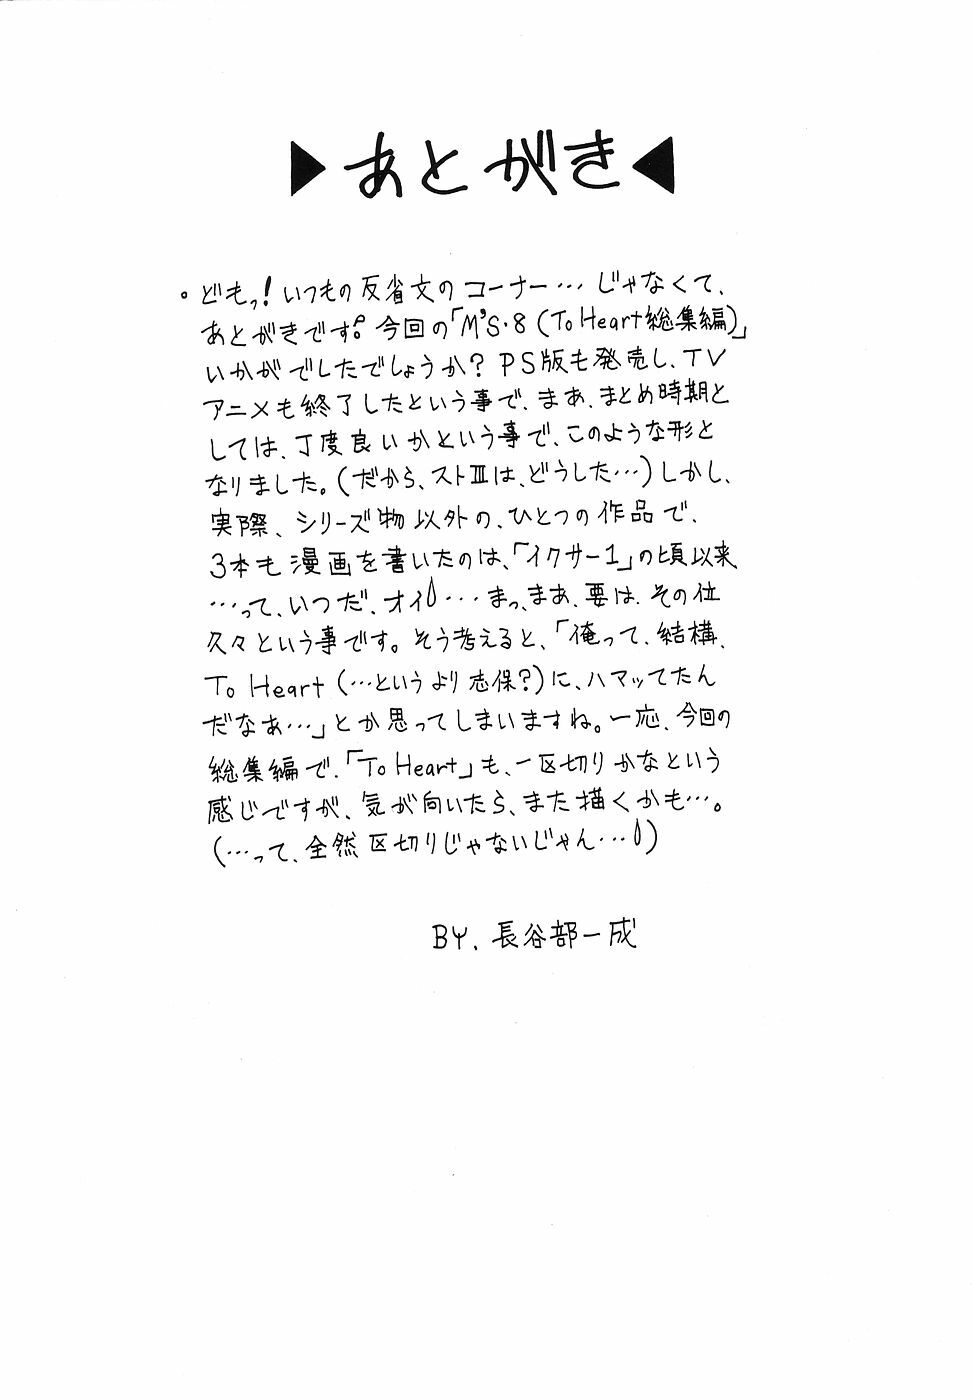 ▶あとがき◀
。どもっ!いつもの反省文のコーナー…じゃなくて、
あとがきです。今回の「M'S・8(To Heart総集編)」
いかがでしたでしょうか?PS版も発売し、TV
アニメも終了したという事で、まあ、まとめ時期と
しては、丁度良いかという事で、このような形と
なりました。(だから、ストⅢは、どうした…)しかし、
実際、シリーズ物以外の、ひとつの作品で、
3本も漫画を書いたのは、「イクサー1」の頃以来
…って、いつだ、オイ…まっ、まあ、要は、その位
久々という事です。そう考えると、「俺って、結構、
To Heart(…というより志保?)に、ハマッてたん
だなあ…」とか思ってしまいますね。一応、今回の
総集編で、「To Heart」も、一区切りかなという
感じですが、気が向いたら、また描くかも…。
(…って、全然区切りじゃないじゃん…)
BY.長谷部一成